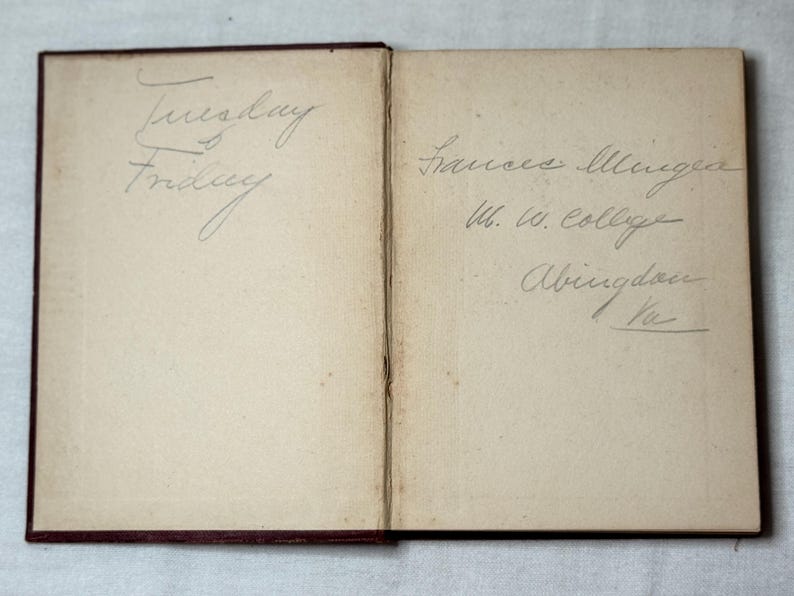 Tuesday
&
Friday
Frances Mingea
M. W. College
Abingdon
Va